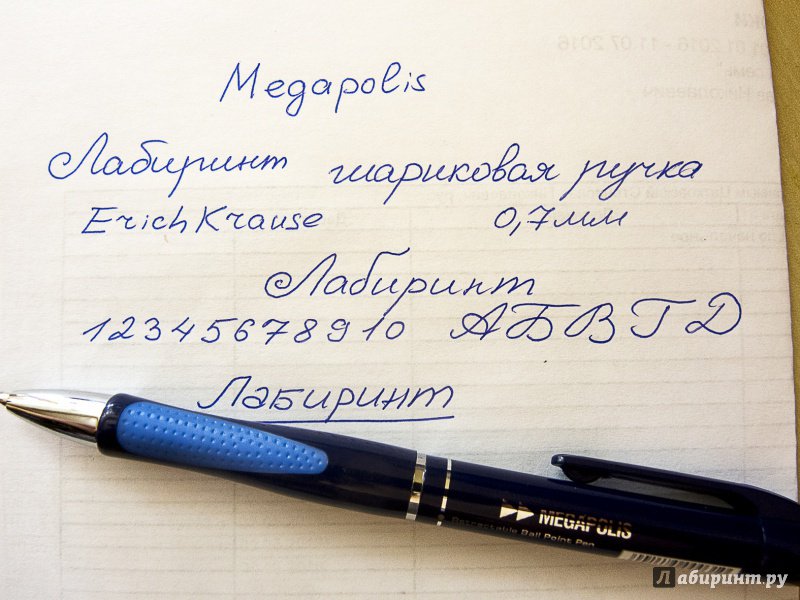 Megapolis
Лабиринт шариковая ручка
ErichKrause 0,7мм
Лабиринт
12345678910 АБВГД
Лабиринт
MEGAPOLIS
Retractable Ball Point Pen
Лабиринт.ру
01.2016 - 11.07.2016